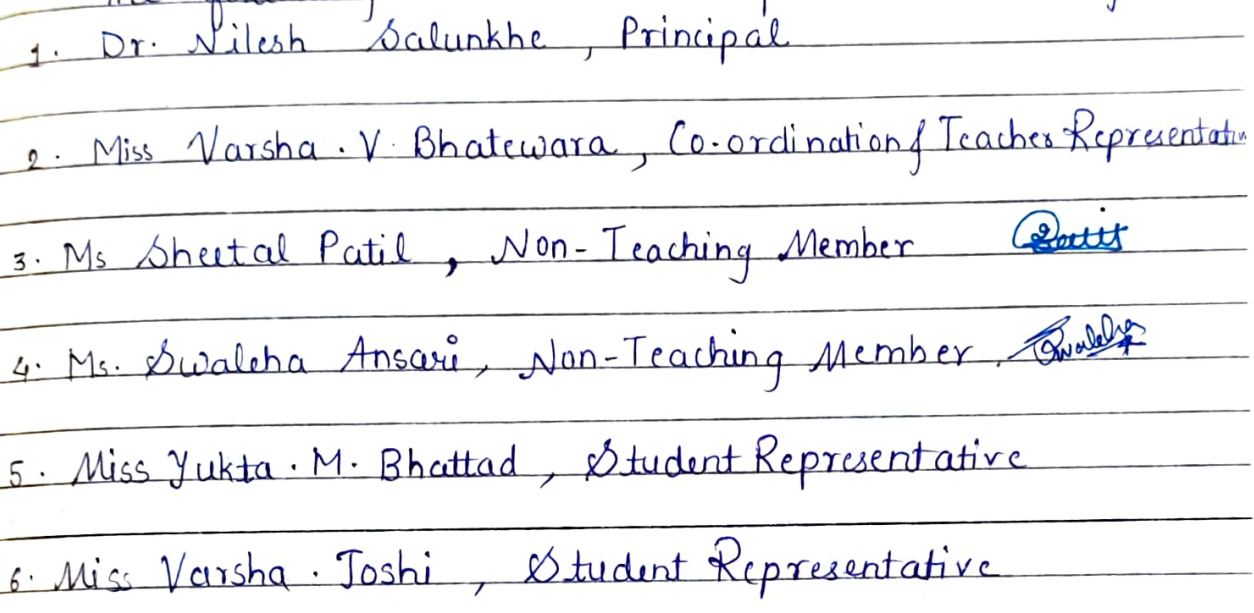 1. Dr. Nilesh Salunkhe, Principal
2. Miss Varsha. V. Bhatewara, Co-ordination & Teacher Representativ
3. Ms Sheetal Patil, Non-Teaching Member
4. Ms. Swaleha Ansari, Non-Teaching Member, Swaleha
5. Miss Yukta. M. Bhattad, Student Representative
6. Miss Varsha. Joshi, Student Representative